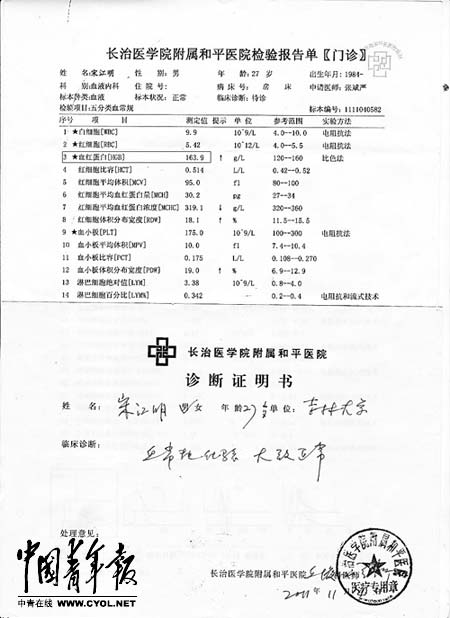 长治医学院附属和平医院检验报告单〖门诊〗
姓 名:宋江明 性 别:男 年 龄:27 岁 出生年月:1984-
科 别:血液内科 住院号: 病床号: 房 床 申请医师:张斌严
标本种类:血液 标本状况:正常 临床诊断:待诊
检验项目:五分类血常规 标本编号:1111040582
序号 项 目 测定值 提示 单 位 参考范围 实验方法
1 ★白细胞[WBC] 9.9 10^9/L 4.0--10.0 电阻抗法
2 ★红细胞[RBC] 5.42 10^12/L 4.0--5.5 电阻抗法
3 ★血红蛋白[HGB] 163.9 ↑ g/L 120--160 比色法
4 红细胞比容[HCT] 0.514 L/L 0.42--0.52
5 红细胞平均体积[MCV] 95.0 fl 80--100
6 红细胞平均血红蛋白量[MCH] 30.2 pg 27--34
7 红细胞平均血红蛋白浓度[MCHC] 319.1 ↓ g/L 320--360
8 红细胞体积分布宽度[RDW] 18.1 ↑ % 11.5--15.5
9 ★血小板[PLT] 175.0 10^9/L 100--300 电阻抗法
10 血小板平均体积[MPV] 10.0 fl 7.4--10.4
11 血小板比容[PCT] 0.175 L/L 0.108--0.270
12 血小板体积分布宽度[PDW] 19.0 ↑ % 6.9--12.9
13 淋巴细胞绝对值[LYM] 3.38 10^9/L 0.8--4.0
14 淋巴细胞百分比[LYM%] 0.342 0.2--0.4 电阻抗和流式技术
长治医学院附属和平医院
诊断证明书
姓 名: 宋江明 男 女 年 龄 27 单位: 吉林大学
临床诊断:
血常规化验 大致正常
处理意见:
中国青年报
中青在线 WWW.CYOL.NET
长治医学院附属和平医院
2011 年 11 月
长治医学院附属和平医院
医疗专用章